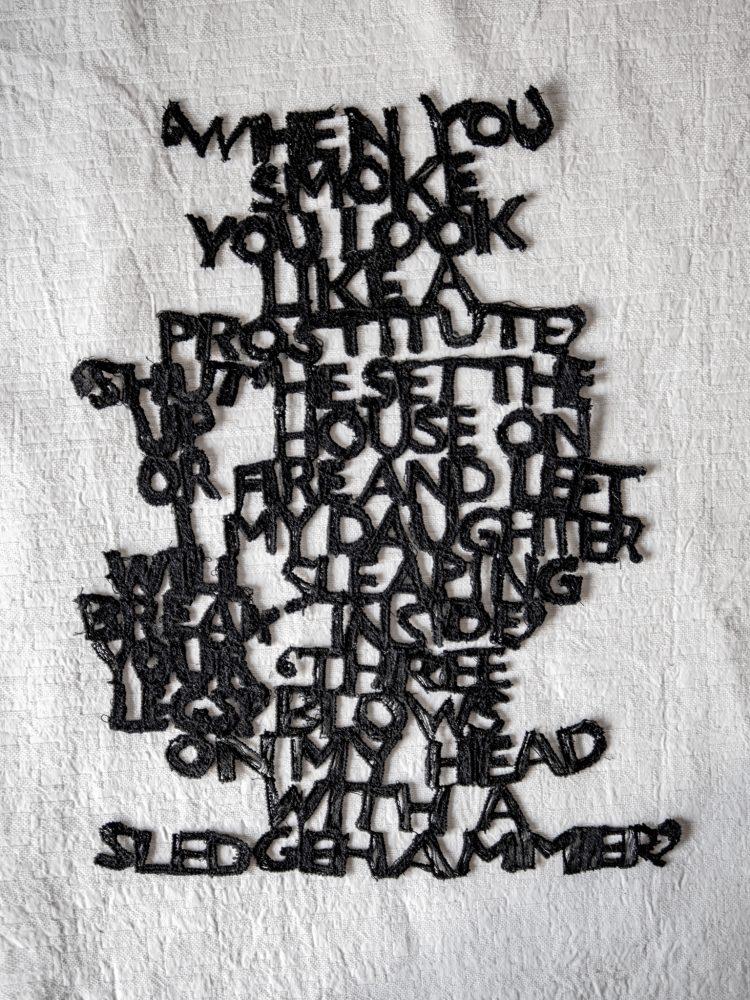 'WHEN YOU
SMOKE
YOU LOOK
LIKE A
PROSTITUTE'
'SHUT
UP
OR
I
WILL
BREAK
YOUR
LEGS'
'HE SET THE
HOUSE ON
FIRE AND LEFT
MY DAUGHTER
SLEAPING
INSIDE'
'THREE
BLOWS
ON MY HEAD
WITH A
SLEDGEHAMMER'